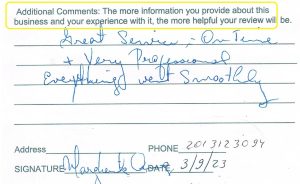 Additional Comments: The more information you provide about this
business and your experience with it, the more helpful your review will be.
Great Service - On Time
+ Very Professional
Everything went Smoothly
Address PHONE 2013123094
SIGNATURE DATE 3/9/23